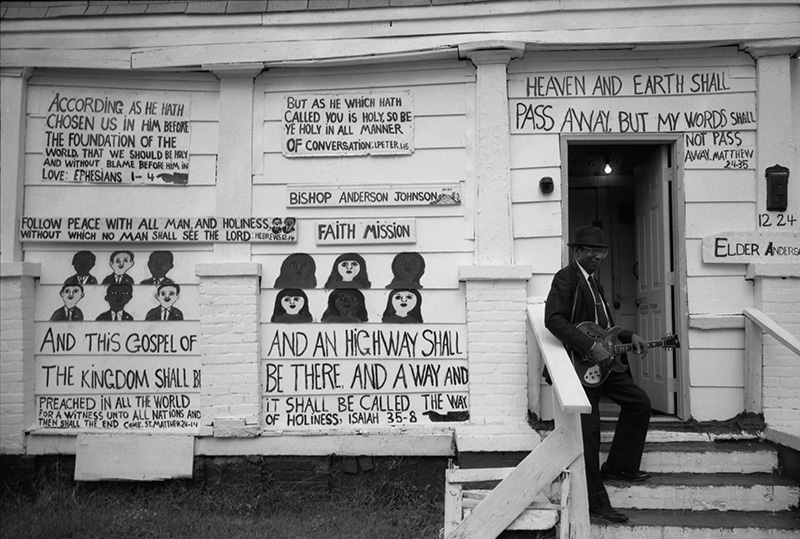 ACCORDING AS HE HATH
CHOSEN US IN HIM BEFORE
THE FOUNDATION OF THE
WORLD, THAT WE SHOULD BE HOLY
AND WITHOUT BLAME BEFORE HIM IN
LOVE: EPHESIANS 1-4
BUT AS HE WHICH HATH
CALLED YOU IS HOLY, SO BE
YE HOLY IN ALL MANNER
OF CONVERSATION: I PETER 1:15
BISHOP ANDERSON JOHNSON
FAITH MISSION
FOLLOW PEACE WITH ALL MAN, AND HOLINESS,
WITHOUT WHICH NO MAN SHALL SEE THE LORD: HEBREWS 12-14
AND THIS GOSPEL OF
THE KINGDOM SHALL BE
PREACHED IN ALL THE WORLD
FOR A WITNESS UNTO ALL NATIONS AND
THEN SHALL THE END COME. ST. MATTHEW 24-14
AND AN HIGHWAY SHALL
BE THERE, AND A WAY AND
IT SHALL BE CALLED THE WAY
OF HOLINESS; ISAIAH 35-8
HEAVEN AND EARTH SHALL
PASS AWAY, BUT MY WORDS SHALL
NOT PASS
AWAY. MATTHEW
24-35
1224
ELDER ANDERSO